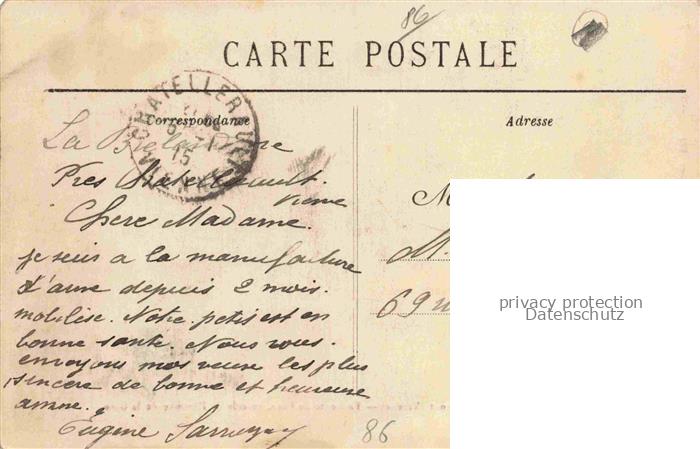 86
CARTE POSTALE
CHATELLERAULT
15
VIENNE
Correspondance
Adresse
La
Pres Chatellerault.
Vienne
Chere Madame.
je suis a la manufacture
d'arme depuis 2 mois.
mobilise. Notre petis est en
bonne sante. Nous vous.
envoyons mos veux les plus
sincere de bonne et heureuse
anne.
Eugène
M
M.
69
privacy protection
Datenschutz
86